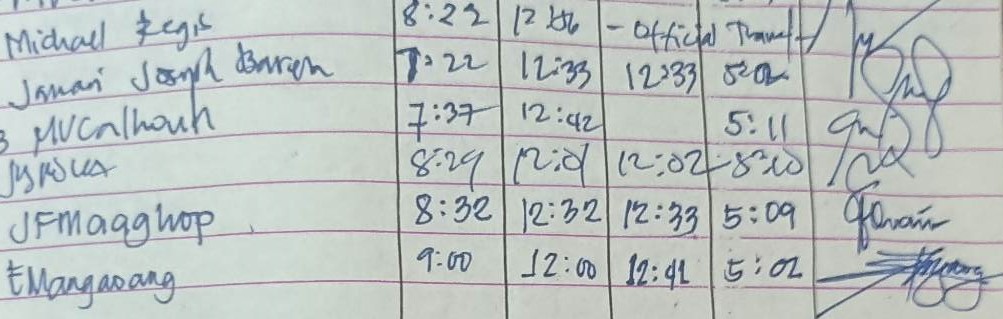 Michael Regis 8:22 12:56 - Official Travel -
Joseph 7:22 12:33 12:33 5:02
MVCalhoun 7:37 12:42 5:11
8:29 12:01 12:02
JFMagghop 8:32 12:32 12:33 5:09
EMangaoang 9:00 12:00 12:41 5:02